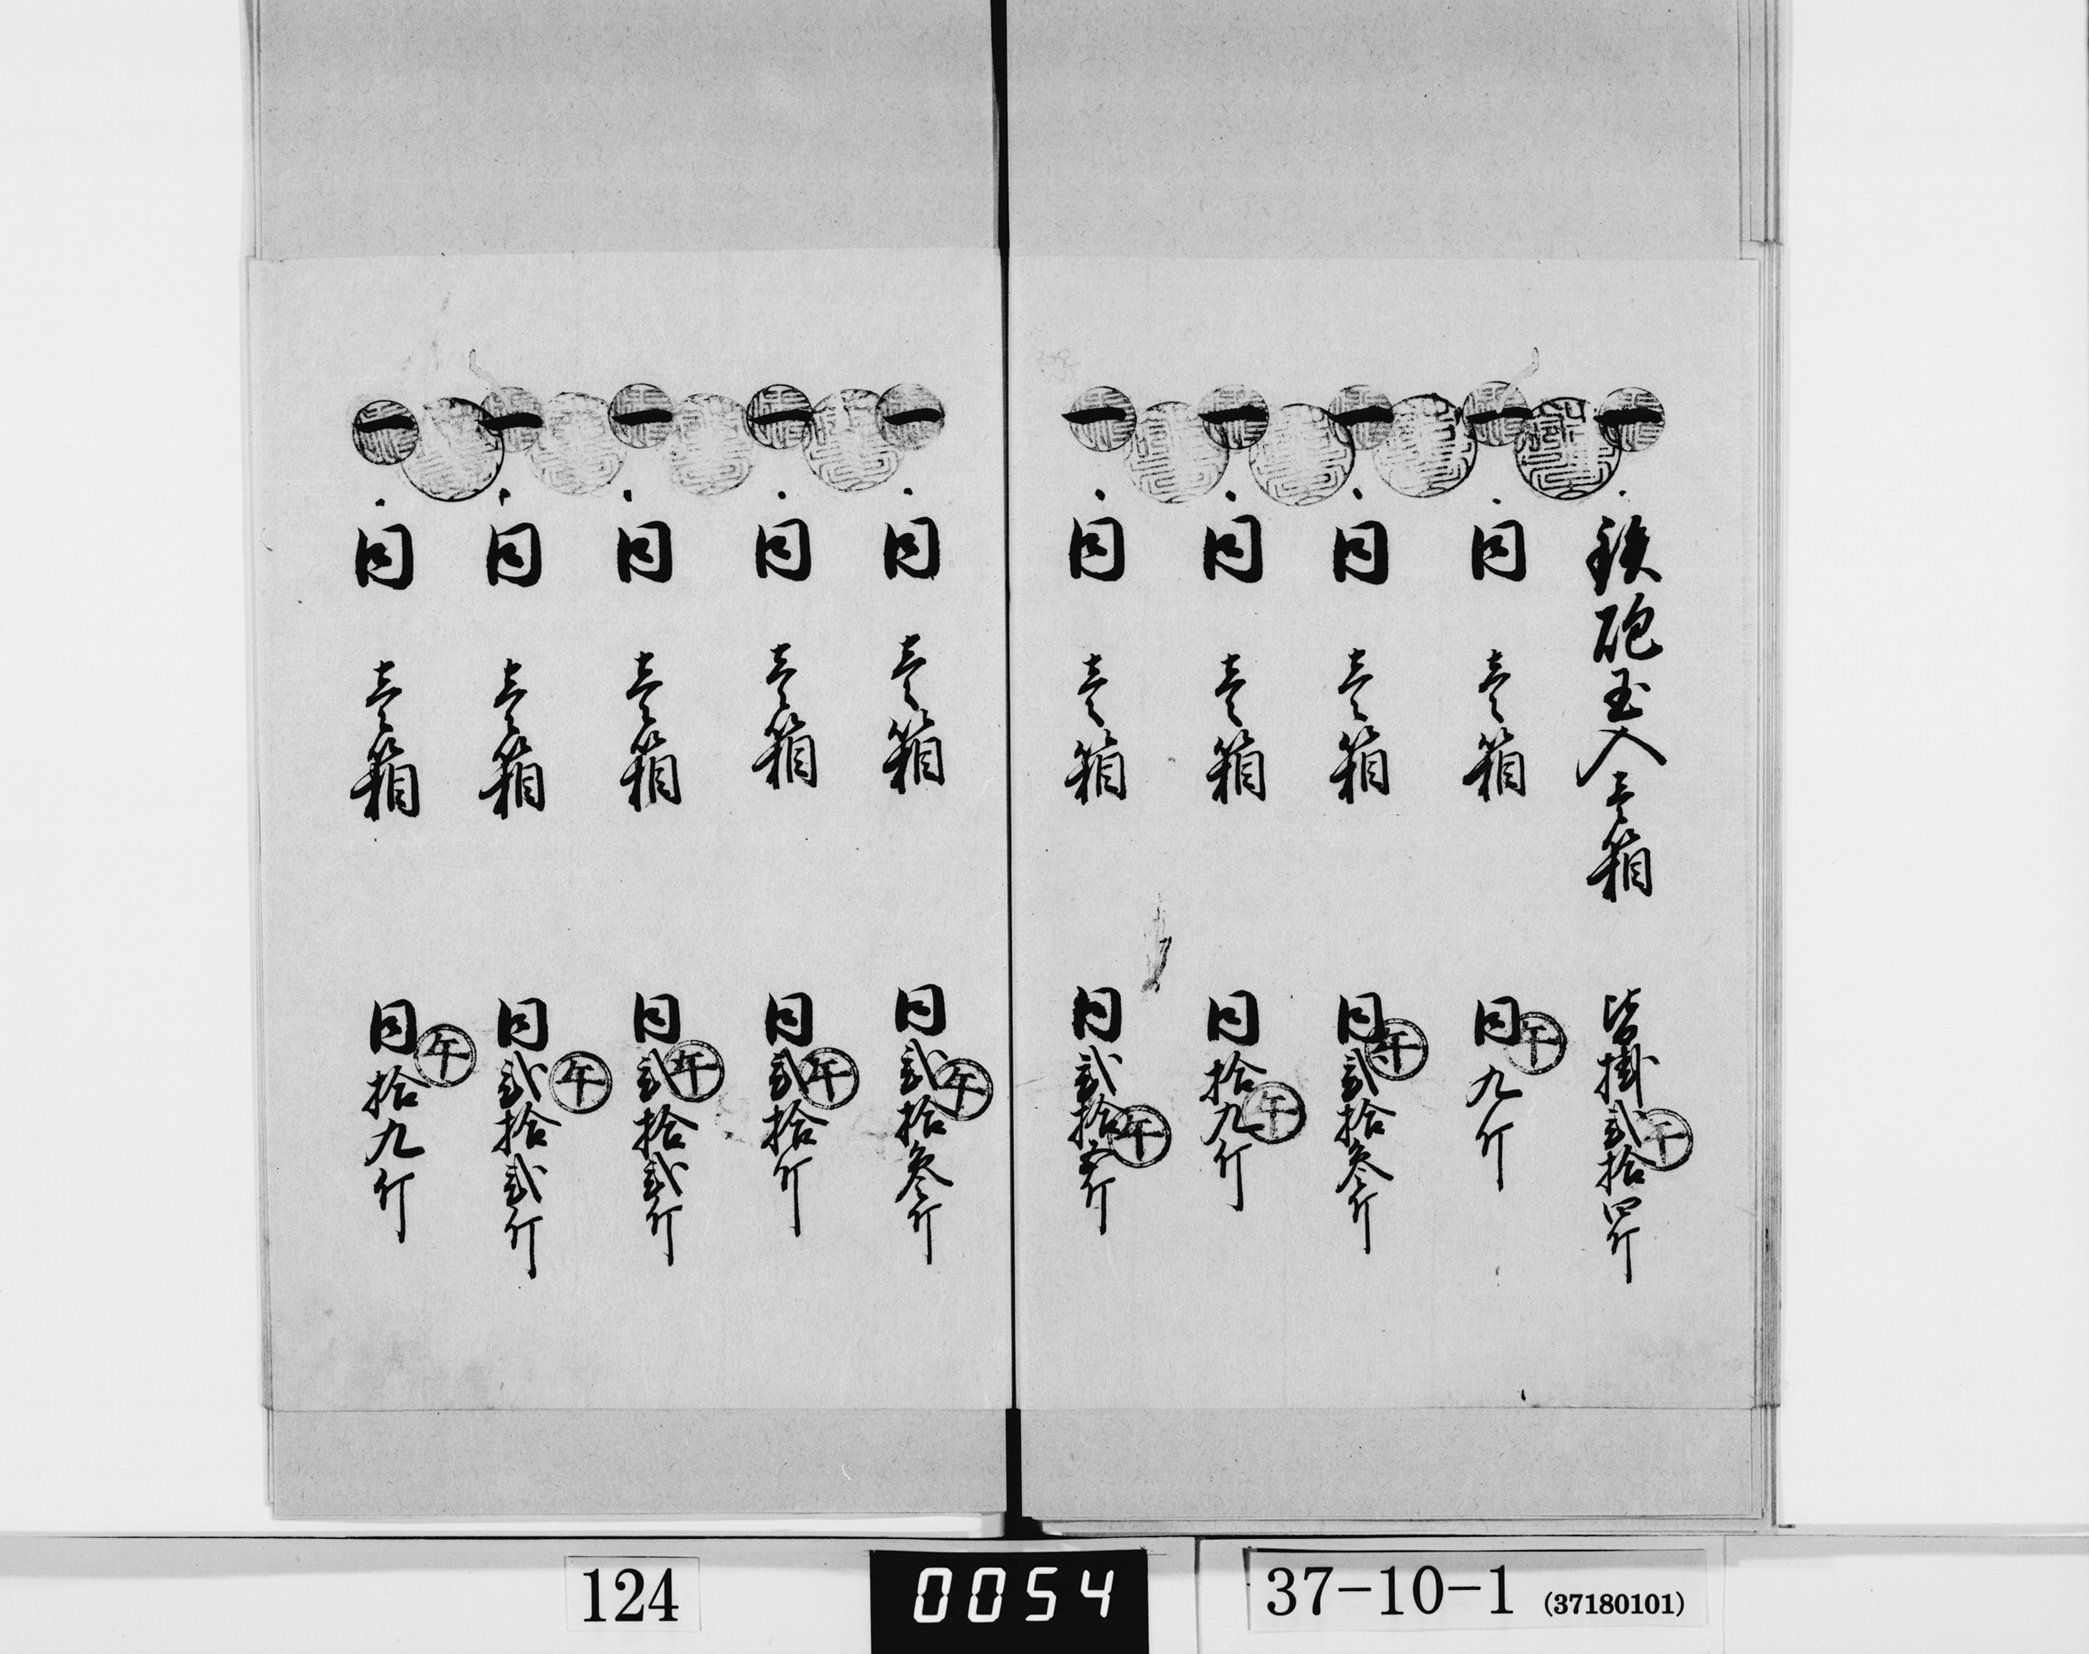 一鉄砲玉入壱箱 皆掛弐拾四斤 午
一同 壱箱 同九斤 午
一同 壱箱 同弐拾参斤 午
一同 壱箱 同拾九斤 午
一同 壱箱 同弐拾五斤 午
一同 壱箱 同弐拾参斤 午
一同 壱箱 同弐拾斤 午
一同 壱箱 同弐拾弐斤 午
一同 壱箱 同弐拾弐斤 午
一同 壱箱 同拾九斤 午
124
0054
37-10-1 (37180101)